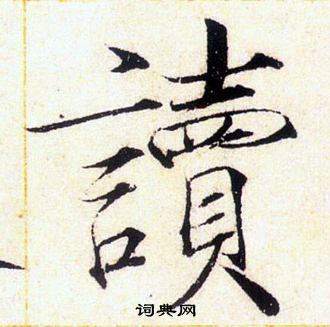 讀
词典网